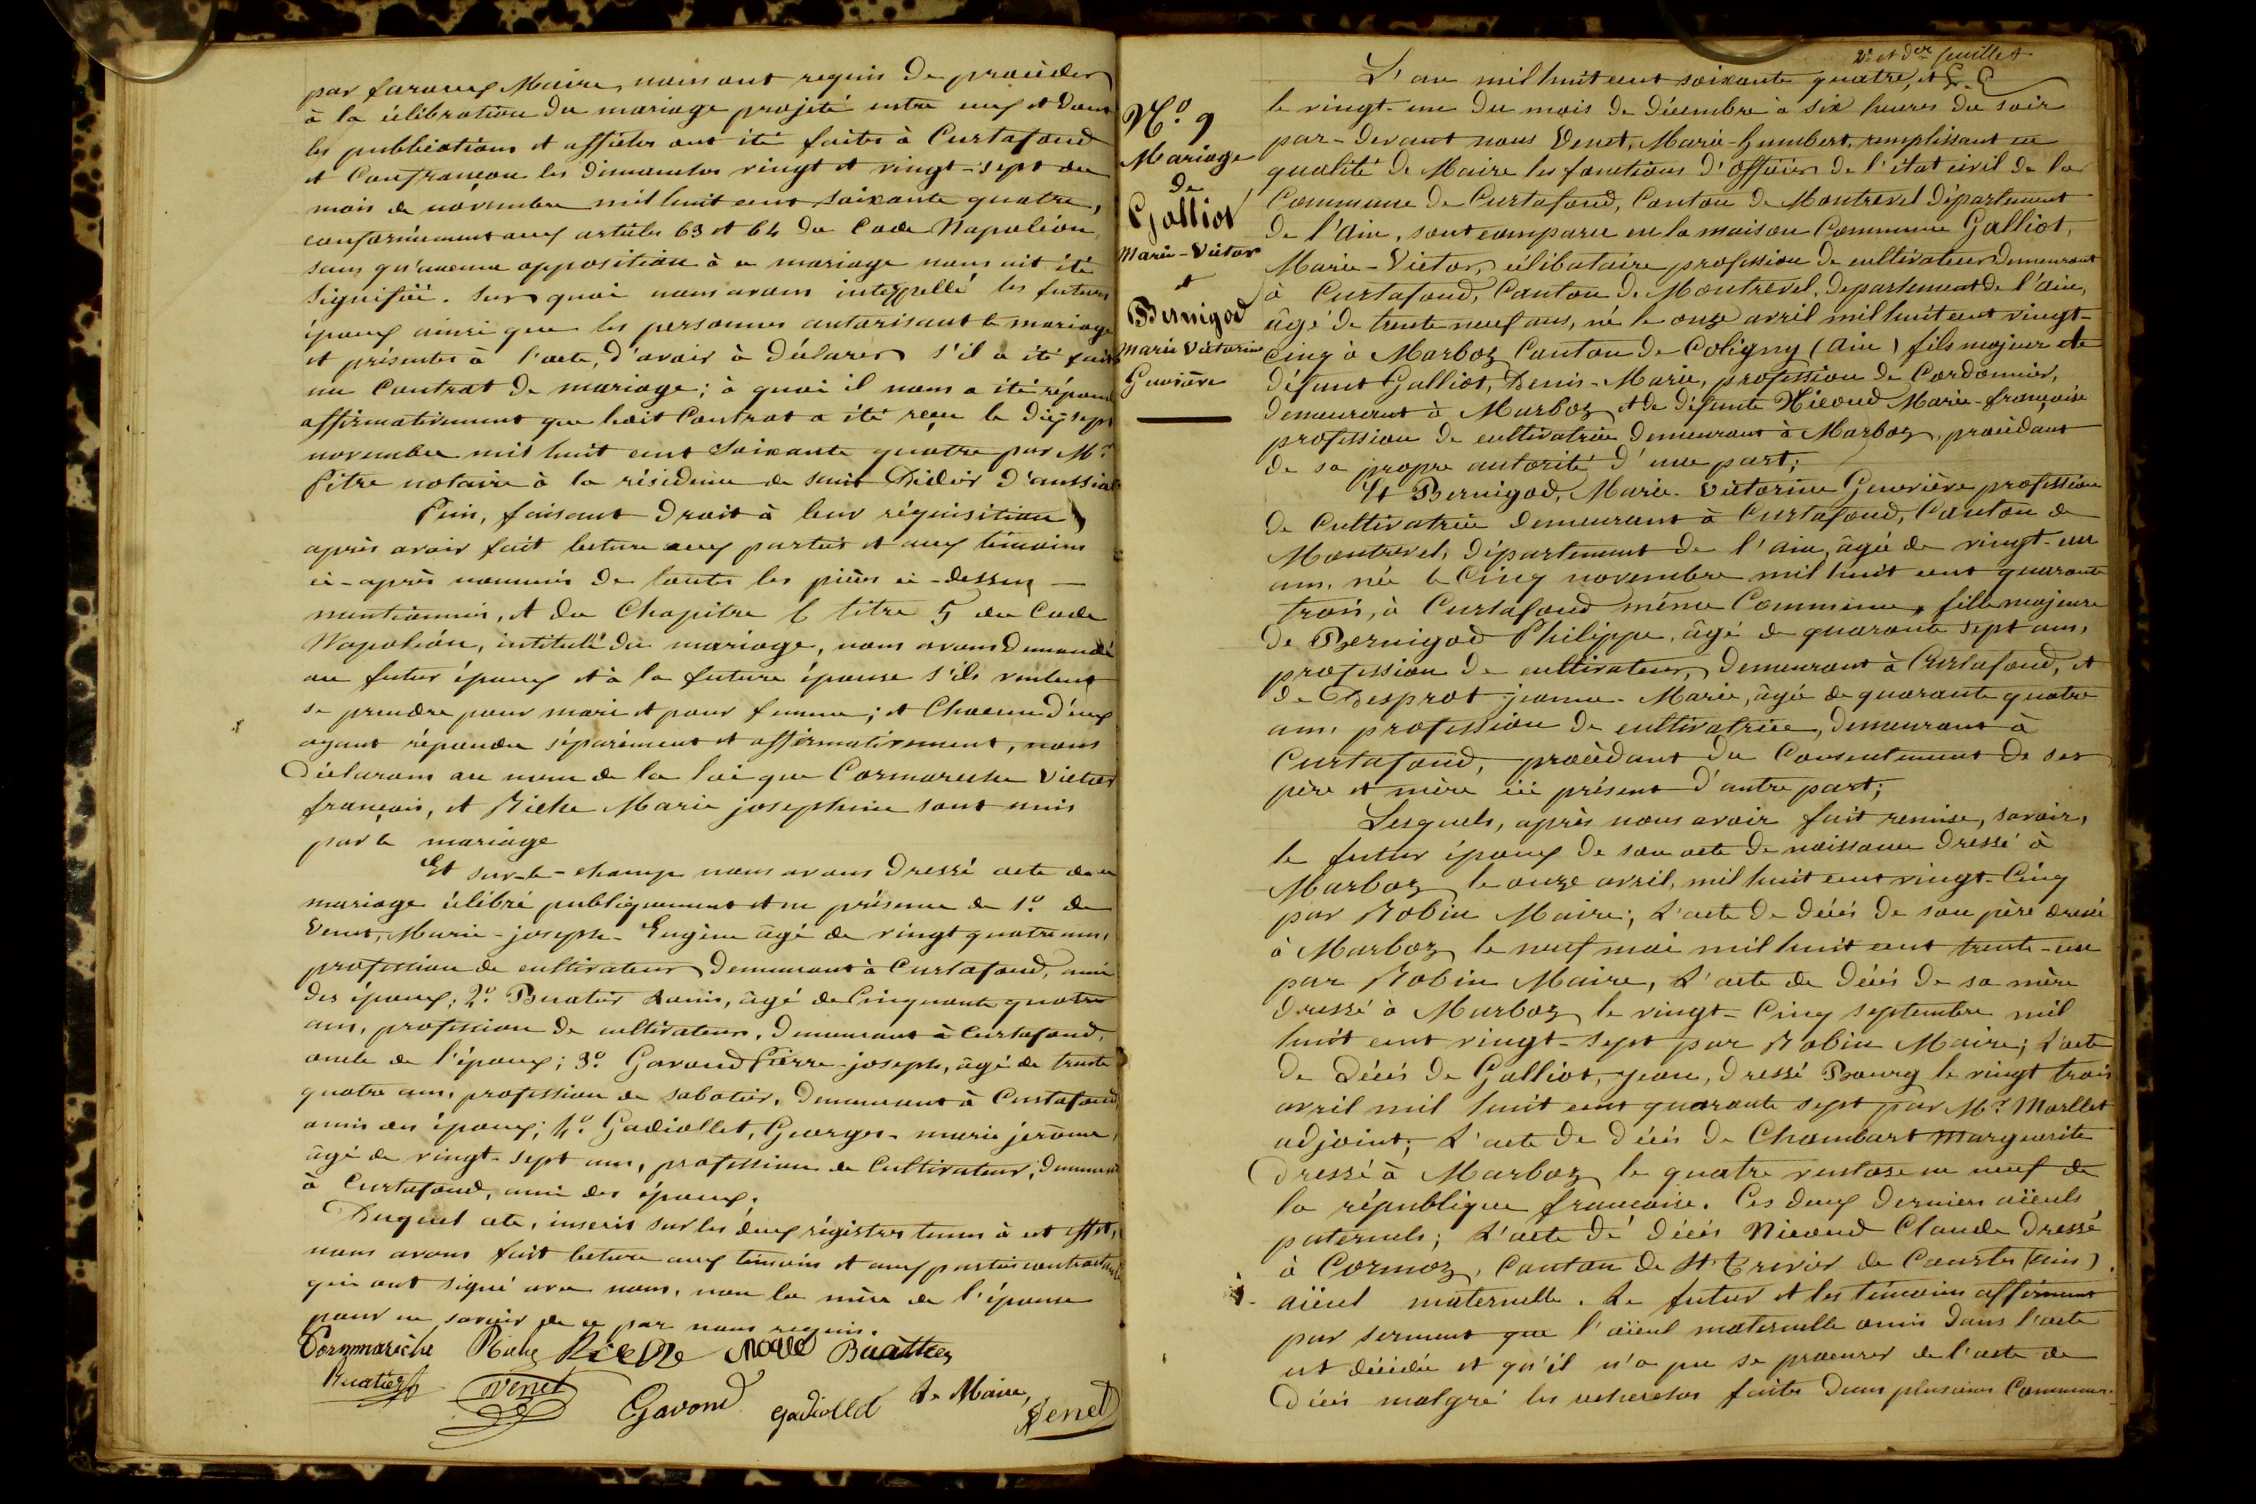 par Maire, nous ont requis de procéder
à la célébration du mariage projeté entre eux et dont
les publications et affiches ont été faites à Curtafond
et Confrançon les dimanches vingt et vingt-sept du
mois de novembre mil huit cent soixante quatre,
conformément aux articles 63 et 64 du Code Napoléon
sans qu'aucune opposition à ce mariage nous ait été
signifiée. Sur quoi nous avons interpellé les futurs
époux ainsi que les personnes autorisant le mariage
et présentes à l'acte, d'avoir à déclarer s'il a été fait
un Contrat de mariage; à quoi il nous a été répondu
affirmativement que ledit Contrat a été reçu le dix sept
novembre mil huit cent soixante quatre par Mr.
Pitre notaire à la résidence de saint Didier d'aussiat
Puis, faisant droit à leur réquisition,
après avoir fait lecture aux parties et aux témoins
ci-après nommés de toutes les pièces ci-dessus
mentionnées, et du Chapitre 6 titre 5 du Code
Napoléon, intitulé du mariage, nous avons demandé
au futur époux et à la future épouse s'ils veulent
se prendre pour mari et pour femme; et Chacun d'eux
ayant répondu séparément et affirmativement, nous
Déclarons au nom de la loi que Cormarèche Victor
françois, et Riche Marie josephine sont unis
par le mariage
Et sur-le-champ nous avons dressé acte de ce
mariage célébré publiquement et en présence de 1º. de
Venet, Marie-joseph-Eugène âgé de vingt quatre ans,
profession de cultivateur demeurant à Curtafond, ami
des époux; 2º. Buatier Louis, âgé de Cinquante quatre
ans, profession de cultivateur, demeurant à Curtafond,
oncle de l'époux; 3º. Gavand Pierre-joseph, âgé de trente
quatre ans, profession de sabotier, demeurant à Curtafond
amis des époux; 4º. Gadiollet, Georges-marie jerôme,
âgé de vingt-sept ans, profession de Cultivateur, demeurant
à Curtafond, ami des époux.
Duquel acte, inscrit sur les deux régistres tenus à cet effet,
nous avons fait lecture aux témoins et aux parties contractantes
qui ont signé avec nous, non la mère de l'épouse
pour ne savoir de ce par nous requis.
Cormarèche Riche Riche Buattier
Buatier Venet Gavand Gadiollet Le Maire, Venet
2e. et der feuillet
Nº. 9
Mariage
de
Galliot
Marie-Victor
et
Bernigod
Marie Victorine
Genviève
L'an mil huit cent soixante quatre, et
le vingt-un du mois de décembre à six heures du soir
par-devant nous Venet, Marie-Humbert, remplissant en
qualité de Maire les fonctions d'officier de l'état civil de la
Commune de Curtafond, Canton de Montrevel département
de l'Ain, sont comparu en la maison Commune Galliot,
Marie-Victor, célibataire profession de cultivateur demeurant
à Curtafond, Canton de Montrevel, département de l'ain,
âgé de trente neuf ans, né le onze avril mil huit cent vingt-
cinq à Marboz Canton de Coligny (ain) fils majeur de
défunt Galliot, Denis-Marie, profession de Cordonnier,
demeurant à Marboz et de défunte Nicoud Marie-françoise
profession de cultivatrice demeurant à Marboz, procédant
de sa propre autorité d'une part;
Et Bernigod, Marie-Victorine Genviève profession
de Cultivatrice demeurant à Curtafond, Canton de
Montrevel, département de l'ain, âgée de vingt-un
ans, née le Cinq novembre mil huit cent quarante
trois, à Curtafond même Commune, fille majeure
de Bernigod Philippe, âgé de quarante sept ans,
profession de cultivateur, demeurant à Curtafond, et
de Desprot jeanne-Marie, âgée de quarante quatre
ans, profession de cultivatrice, demeurant à
Curtafond, procédant du Consentement de ses
père et mère ici présent d'autre part;
Lesquels, après nous avoir fait remise, savoir,
le futur époux de son acte de naissance dressé à
Marboz le onze avril, mil huit cent vingt-Cinq
par Robin Maire; L'acte de décés de son père dressé
à Marboz le neuf mai mil huit cent trente-un
par Robin Maire, L'acte de décés de sa mère
dressé à Marboz le vingt-Cinq septembre mil
huit cent vingt-sept par Robin Maire; L'acte
de Décés de Galliot, jean, dressé Bourg le vingt trois
avril mil huit cent quarante sept par Mr. Morellet
adjoint; L'acte de décés de Chambart Marguerite
Dressé à Marboz le quatre ventose an neuf de
la république française. Ces deux derniers aïeuls
paternels; L'acte de décés Nicoud Claude dressé
à Cormoz, Canton de St. Trivier de Courtes (ain)
aïeul maternelle. Le futur et les témoins affirment
par serment que l'aïeul maternelle omis dans l'acte
est décédée et qu'il n'a pu se procurer de l'acte de
Décés malgré les recherches faites dans plusieurs Communes